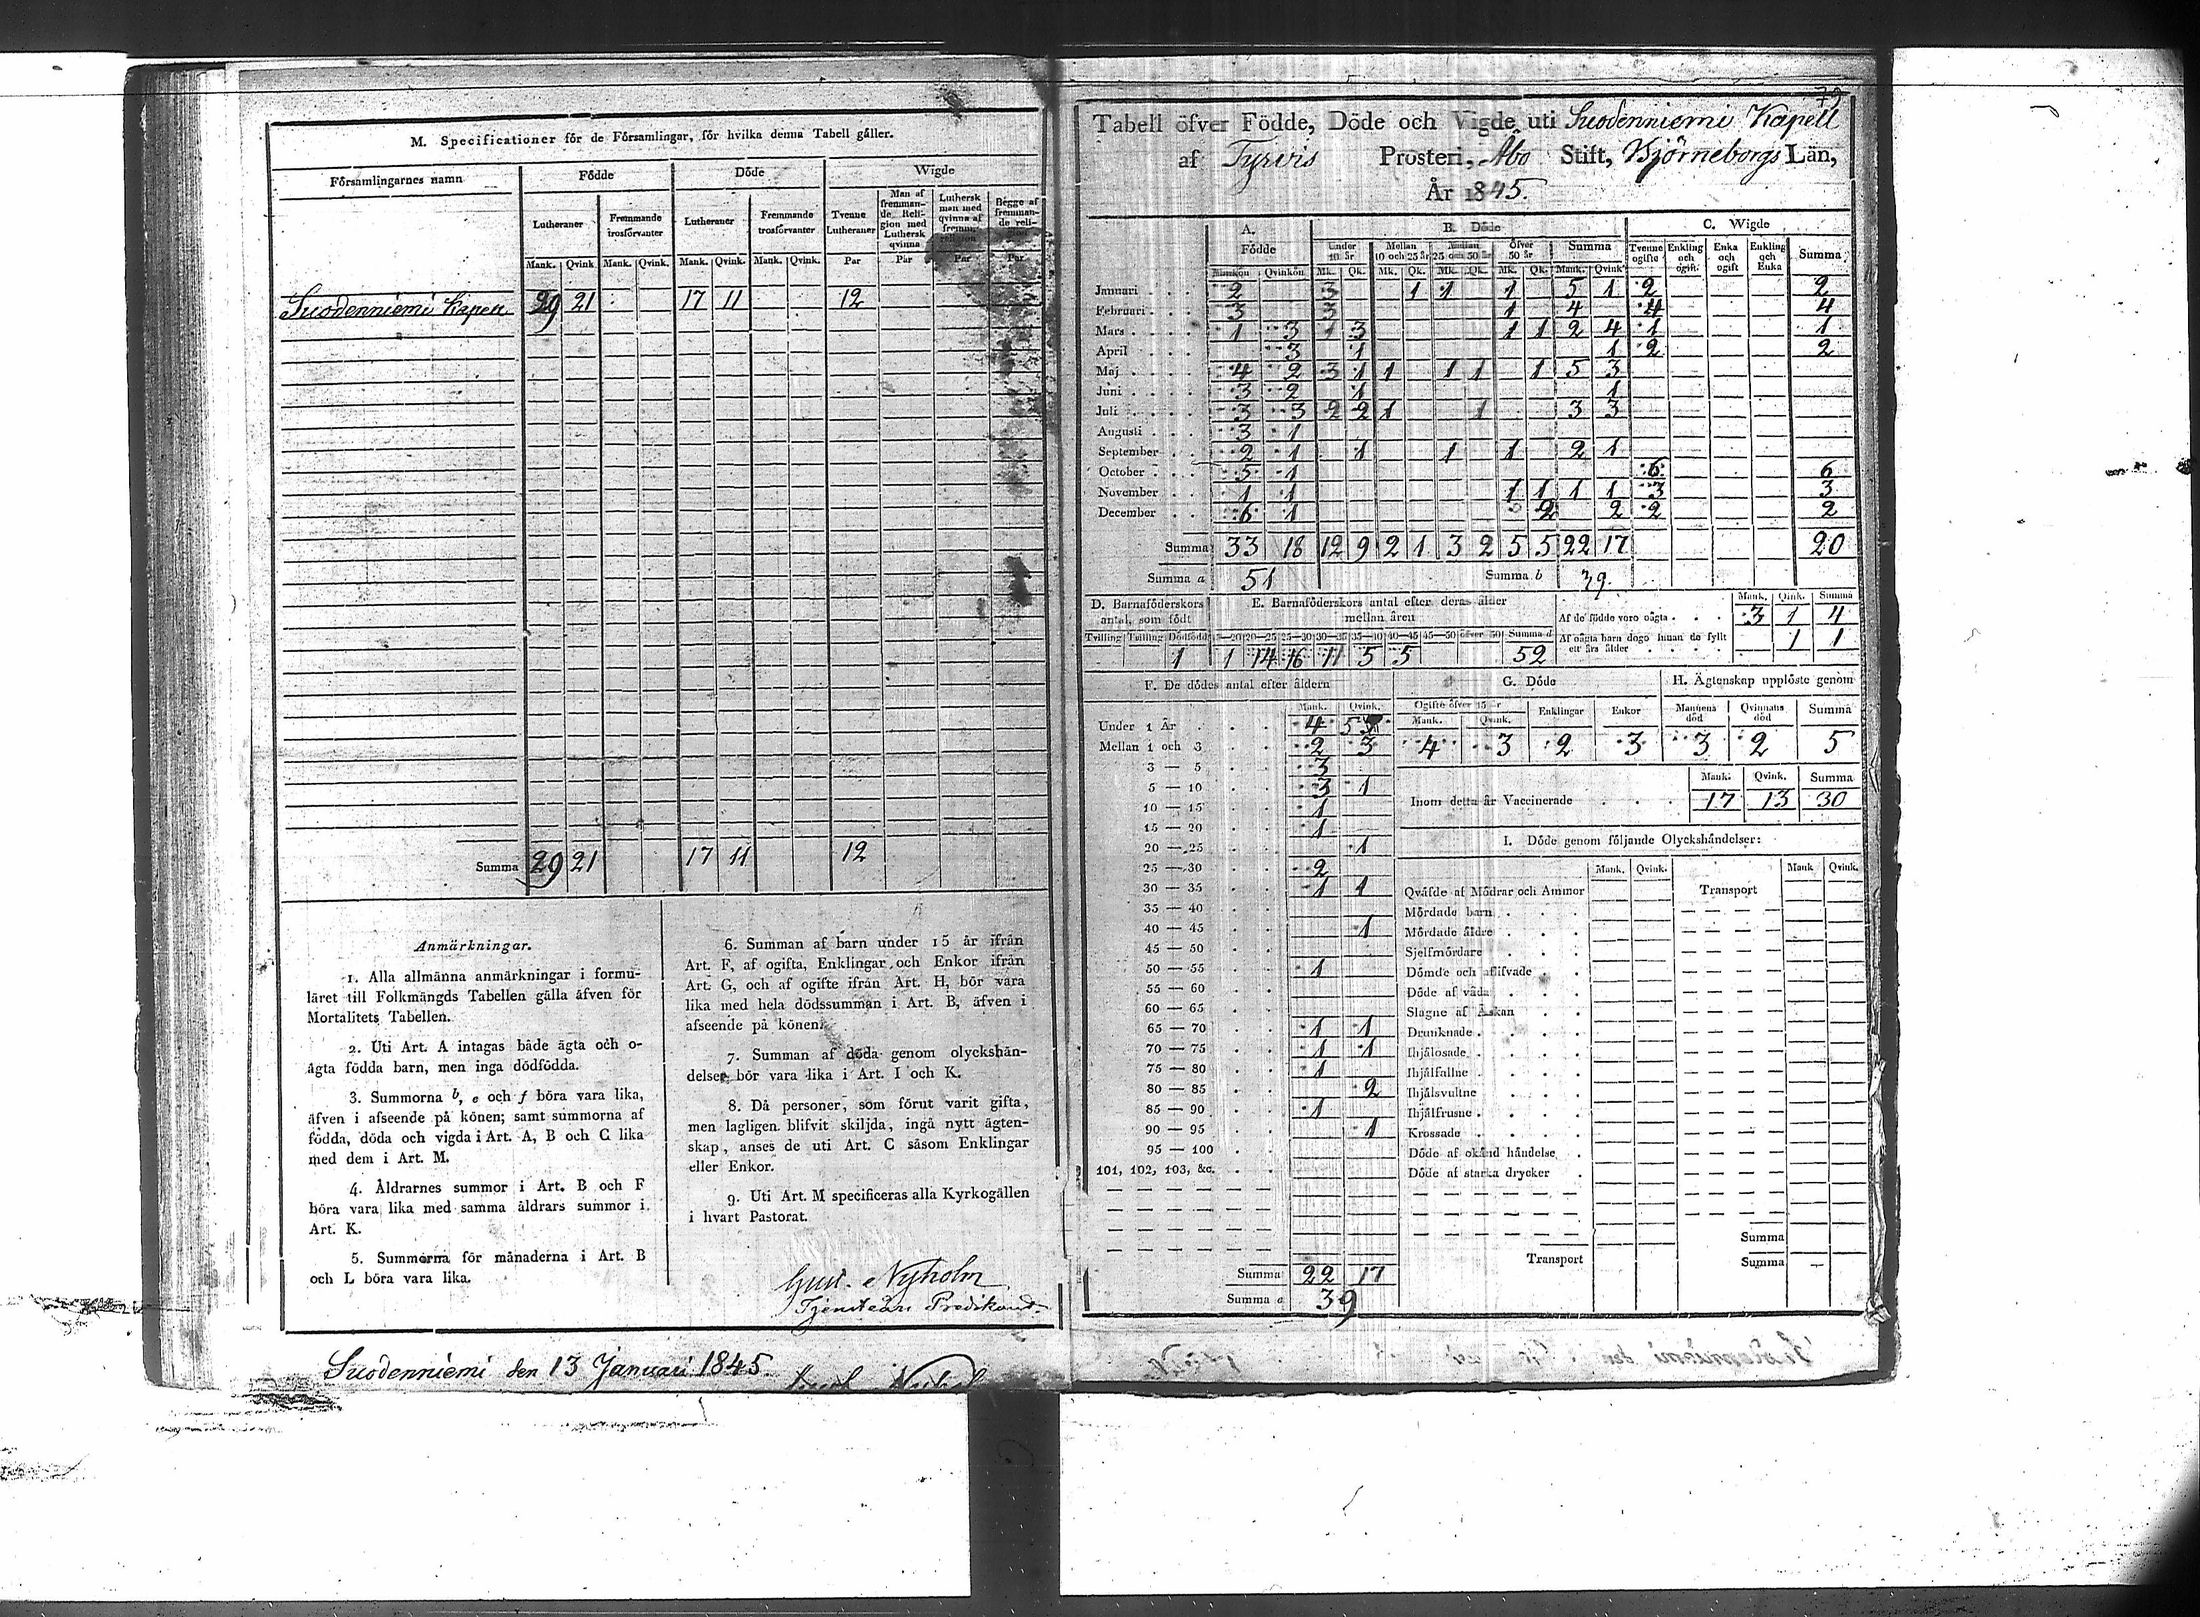 M. Specificationer för de Församlingar, för hvilka denna Tabell gäller.
Församlingarnes namn | Födde | Döde | Wigde
Lutheraner | Fremmande trosförvanter | Lutheraner | Fremmande trosförvanter | Tvenne Lutheraner | Man af fremmande Religion med Luthersk qvinna | Luthersk man med qvinna af fremm. religion | Begge af fremmande reli-
Mank. | Qvink. | Mank. | Qvink. | Mank. | Qvink. | Mank. | Qvink. | Par | Par | Par | Par
Suodenniemi Kapell 29 21 17 11 12
Summa 29 21 17 11 12
Anmärkningar.
1. Alla allmänna anmärkningar i formu-
läret till Folkmängds Tabellen gälla äfven för
Mortalitets Tabellen.
2. Uti Art. A intagas både ägta och o-
ägta födda barn, men inga dödfödda.
3. Summorna b, e och f böra vara lika,
äfven i afseende på könen; samt summorna af
födda, döda och vigda i Art. A, B och C lika
med dem i Art. M.
4. Åldrarnes summor i Art. B och F
böra vara lika med samma åldrars summor i
Art. K.
5. Summorna för månaderna i Art. B
och L böra vara lika.
6. Summan af barn under 15 år ifrån
Art. F, af ogifta, Enklingar och Enkor ifrån
Art. G, och af ogifte ifrån Art. H, bör vara
lika med hela dödssumman i Art. B, äfven i
afseende på könen.
7. Summan af döda genom olyckshän-
delser bör vara lika i Art. I och K.
8. Då personer, som förut varit gifta,
men lagligen blifvit skiljda, ingå nytt ägten-
skap, anses de uti Art. C såsom Enklingar
eller Enkor.
9. Uti Art. M specificeras alla Kyrkogällen
i hvart Pastorat.
Gust. Nyholm
Tjenstear Predikant
Suodenniemi den 13 Januari 1845.
79
Tabell öfver Födde, Döde och Vigde uti Suodenniemi Kapell
af Tyrvis Prosteri, Åbo Stift, Björneborgs Län,
År 1845.
A. Födde | B. Döde | C. Wigde
Under 10 år | Mellan 10 och 25 år | Mellan 25 och 50 år | Öfver 50 år | Summa | Tvenne ogifte | Enkling och ogift | Enka och ogift | Enkling och Enka | Summa
Mankön | Qvinkön | Mk. | Qk. | Mk. | Qk. | Mk. | Qk. | Mk. | Qk. | Mank. | Qvink.
Januari 2 3 1 1 1 5 1 2 2
Februari 3 3 1 4 4 4
Mars 1 3 1 3 1 1 2 4 1 1
April 3 1 1 2 2
Maj 4 2 3 1 1 1 1 1 5 3
Juni 3 2 1 1
Juli 3 3 2 2 1 1 3 3
Augusti 3 1
September 2 1 1 1 1 2 1
October 5 1 6 6
November 1 1 1 1 1 1 3 3
December 6 1 2 2 2 2
Summa 33 18 12 9 2 1 3 2 5 5 22 17 20
Summa a 51 Summa b 39.
D. Barnaföderskors antal, som födt
Tvilling | Trilling | Dödfödd
1
E. Barnaföderskors antal efter deras ålder mellan åren
—20 | 20—25 | 25—30 | 30—35 | 35—40 | 40—45 | 45—50 | öfver 50 | Summa d
1 14 16 11 5 5 52
Mank. | Qvink. | Summa
Af de födde voro oägta 3 1 4
Af oägta barn dogo innan de fyllt ett års ålder 1 1
F. De dödes antal efter åldern
Mank. | Qvink.
Under 1 År 4 5
Mellan 1 och 3 2 3
3 — 5 3
5 — 10 3 1
10 — 15 1
15 — 20 1
20 — 25 1
25 — 30 2
30 — 35 1 1
35 — 40
40 — 45 1
45 — 50
50 — 55 1
55 — 60
60 — 65
65 — 70 1 1
70 — 75 1 1
75 — 80 1
80 — 85 2
85 — 90 1
90 — 95 1
95 — 100
101, 102, 103, &c.
Summa 22 17
Summa e 39
G. Döde
Ogifte öfver 15 år | Enklingar | Enkor
Mank. | Qvink.
4 3 2 3
H. Ägtenskap upplöste genom
Mannens död | Qvinnans död | Summa
3 2 5
Mank. | Qvink. | Summa
Inom detta år Vaccinerade 17 13 30
I. Döde genom följande Olyckshändelser:
Mank. | Qvink. | Mank. | Qvink.
Qväfde af Mödrar och Ammor
Mördade barn
Mördade äldre
Sjelfmördare
Dömde och aflifvade
Döde af våda
Slagne af Åskan
Drunknade
Ihjälosade
Ihjälfallne
Ihjälsvultne
Ihjälfrusne
Krossade
Döde af okänd händelse
Döde af starka drycker
Transport
Transport
Summa
Summa